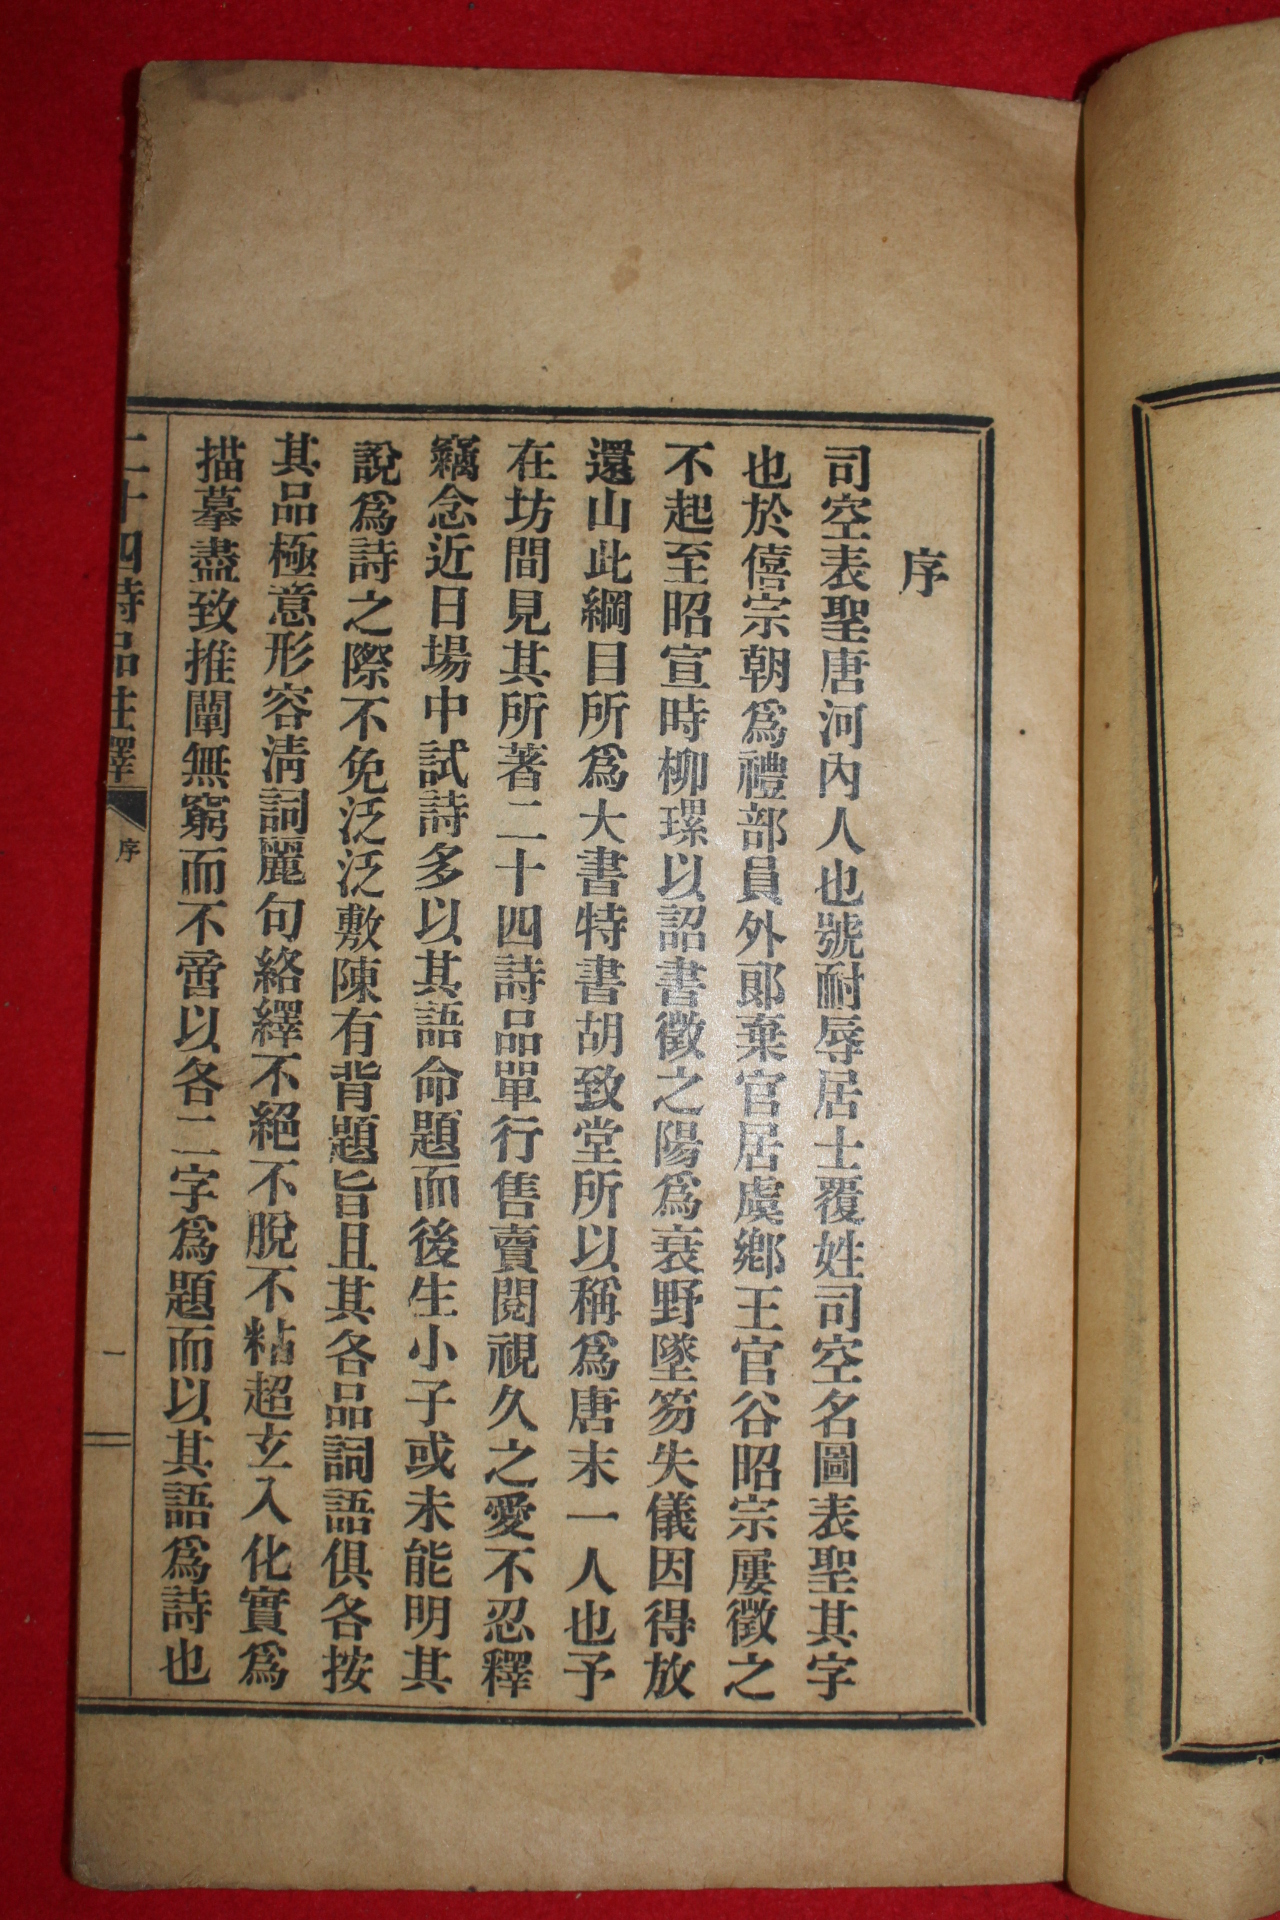 序
司空表聖唐河內人也號耐辱居士覆姓司空名圖表聖其字
也於僖宗朝爲禮部員外郞棄官居虞鄕王官谷昭宗屢徵之
不起至昭宣時柳璨以詔書徵之陽爲衰野墜笏失儀因得放
還山此綱目所爲大書特書胡致堂所以稱爲唐末一人也予
在坊間見其所著二十四詩品單行售賣閱視久之愛不忍釋
竊念近日場中試詩多以其語命題而後生小子或未能明其
說爲詩之際不免泛泛敷陳有背題旨且其各品詞語俱各按
其品極意形容淸詞麗句絡繹不絕不脫不粘超玄入化實爲
描摹盡致推闡無窮而不啻以各二字爲題而以其語爲詩也
二十四詩品註釋
序
一